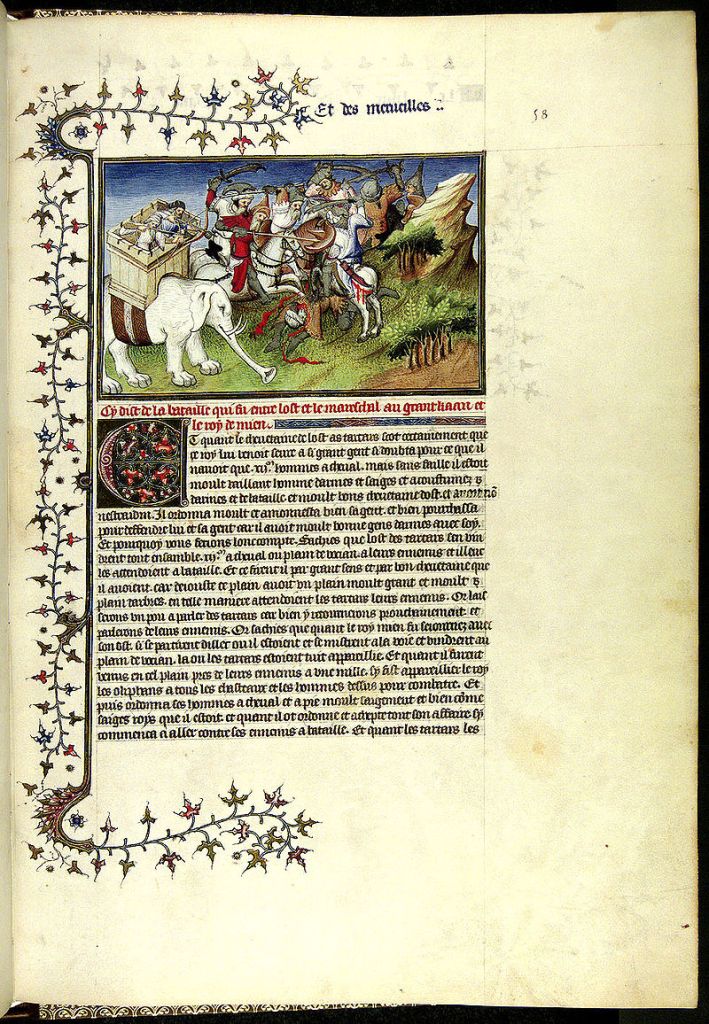 Et des merueilles :.
58
Cy dist de la bataille qui fu entre lost et le mareschal au grant kaan et
le roy de mien.
Et quant le cheuetaine de lost as tartars scot certainement que
ce roy lui venoit seure a si grant gent si doubta pour ce que il
nauoit que .xij.m hommes a cheual. mais sans faille il estoit
moult vaillant homme darmes et saiges et acoustumez
darmes et de bataille et moult bons cheuetaine dost. et
Il ordonna moult et amonnesta bien sa gent. et bien pourchassa
pour deffendre lui et sa gent car il auoit moult bonne gens darmes auec soy.
Et pourquoy vous ferons lonc compte. Sachies que lost des tartars sen vin
drent tout ensemble .xij.m a cheual ou plain de vocian. a leurs ennemis et illeuc
les attendoient a bataille. Et ce firent il par grant sens et par bon cheuetaine que
il auoient. car deiouste ce plain auoit vn plain moult grant et moult
plain darbres. en telle maniere attendoient les tartars leurs ennemis. Or lais
serons vn pou a parler des tartars car bien y retournerons prouchainement. et
parlerons de leurs ennemis. Or sachies que quant le roy mien fu seiournez auec
son ost. si se partirent dillec ou il estoient et se mistrent a la voie et vindrent au
plain de vocian. la ou les tartars estoient tuit appareillie. Et quant il furent
venus en cel plain pres de leurs ennemis a vne mille. sy fist appareillier le roy
les oliphans a tous les chasteaux et les hommes dessus pour combatre. Et
puis ordonna ses hommes a cheual et a pie moult saigement et bien come
saiges roys que il estoit. et quant il ot ordonne et adepte tout son affaire sy
commenca a aller contre ses ennemis a bataille. Et quant les tartars les